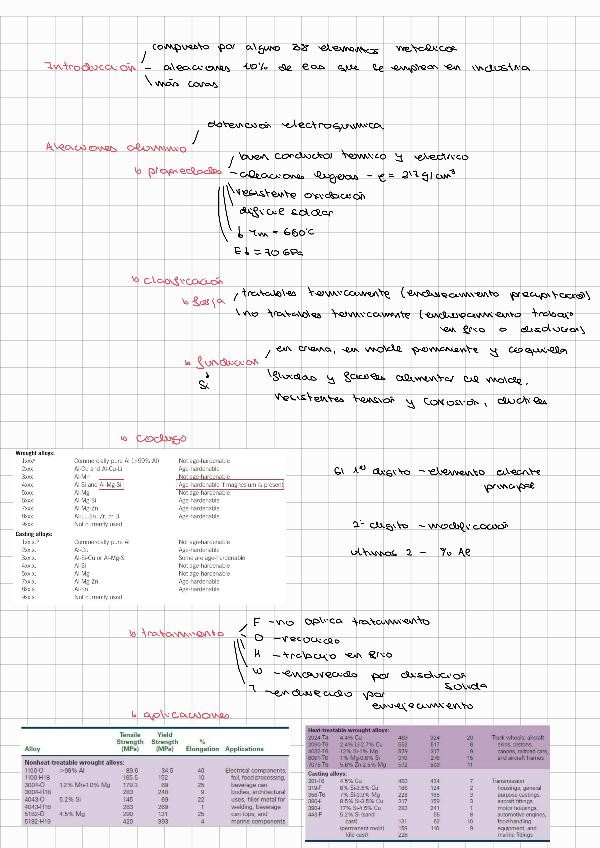 Introducción
compuesto por alguno 88 elementos metalicos
- aleaciones 10% de eas que se emplean en industria
más caras
Aleaciones aluminio
obtención electroquimica
↳ propiedades
buen conductor termico y electrico
- aleaciones ligeras - ρ = 2'7 g/cm³
resistente oxidación
dificil soldar
↓ Tm = 660°C
E↓ = 70 GPa
↳ clasificación
↳ forja
tratables termicamente (endurecimiento precipitación)
no tratables termicamente (endurecimiento trabajo
en frio o disolución)
↳ fundición
Si
en arena, en molde permanente y coquilla
fluidas y faciles alimentar al molde.
resistentes tension y corrosión, ductiles
↳ codigo
Wrought alloys:
1xxx* Commercially pure Al (>99% Al) Not age-hardenable
2xxx Al-Cu and Al-Cu-Li Age-hardenable
3xxx Al-Mn Not age-hardenable
4xxx Al-Si and Al-Mg-Si Age-hardenable if magnesium is present
5xxx Al-Mg Not age-hardenable
6xxx Al-Mg-Si Age-hardenable
7xxx Al-Mg-Zn Age-hardenable
8xxx Al-Li, Sn, Zr, or B Age-hardenable
9xxx Not currently used
Casting alloys:
1xx.x.† Commercially pure Al Not age-hardenable
2xx.x. Al-Cu Age-hardenable
3xx.x. Al-Si-Cu or Al-Mg-Si Some are age-hardenable
4xx.x. Al-Si Not age-hardenable
5xx.x. Al-Mg Not age-hardenable
7xx.x. Al-Mg-Zn Age-hardenable
8xx.x. Al-Sn Age-hardenable
9xx.x. Not currently used
El 1er digito - elemento aleante
principal
2º digito - modificación
ultimos 2 - % Al
↳ tratamiento
F - no aplica tratamiento
O - recocido
H - trabajo en frio
W - envejecido por disolución
solida
T - endurecido por
envejecimiento
↳ aplicaciones
Alloy Tensile Strength (MPa) Yield Strength (MPa) % Elongation Applications
Nonheat-treatable wrought alloys:
1100-O >99% Al 89.6 34.5 40 Electrical components,
1100-H18 165.5 152 10 foil, food processing,
3004-O 1.2% Mn-1.0% Mg 179.3 69 25 beverage can
3004-H18 283 248 9 bodies, architectural
4043-O 5.2% Si 145 69 22 uses, filler metal for
4043-H18 283 269 1 welding, beverage
5182-O 4.5% Mg 290 131 25 can tops, and
5182-H19 420 393 4 marine components
Heat-treatable wrought alloys:
2024-T4 4.4% Cu 469 324 20 Truck wheels, aircraft
2090-T6 2.4% Li-2.7% Cu 552 517 6 skins, pistons,
4032-T6 12% Si-1% Mg 379 317 9 canoes, railroad cars,
6061-T6 1% Mg-0.6% Si 310 276 15 and aircraft frames
7075-T6 5.6% Zn-2.5% Mg 572 503 11
Casting alloys:
201-T6 4.5% Cu 483 434 7 Transmission
319-F 6% Si-3.5% Cu 186 124 2 housings, general
356-T6 7% Si-0.3% Mg 228 165 3 purpose castings,
380-F 8.5% Si-3.5% Cu 317 159 3 aircraft fittings,
390-F 17% Si-4.5% Cu 283 241 1 motor housings,
443-F 5.2% Si (sand 55 8 automotive engines,
cast) 131 62 10 food-handling
(permanent mold) 159 110 9 equipment, and
(die cast) 228 marine fittings